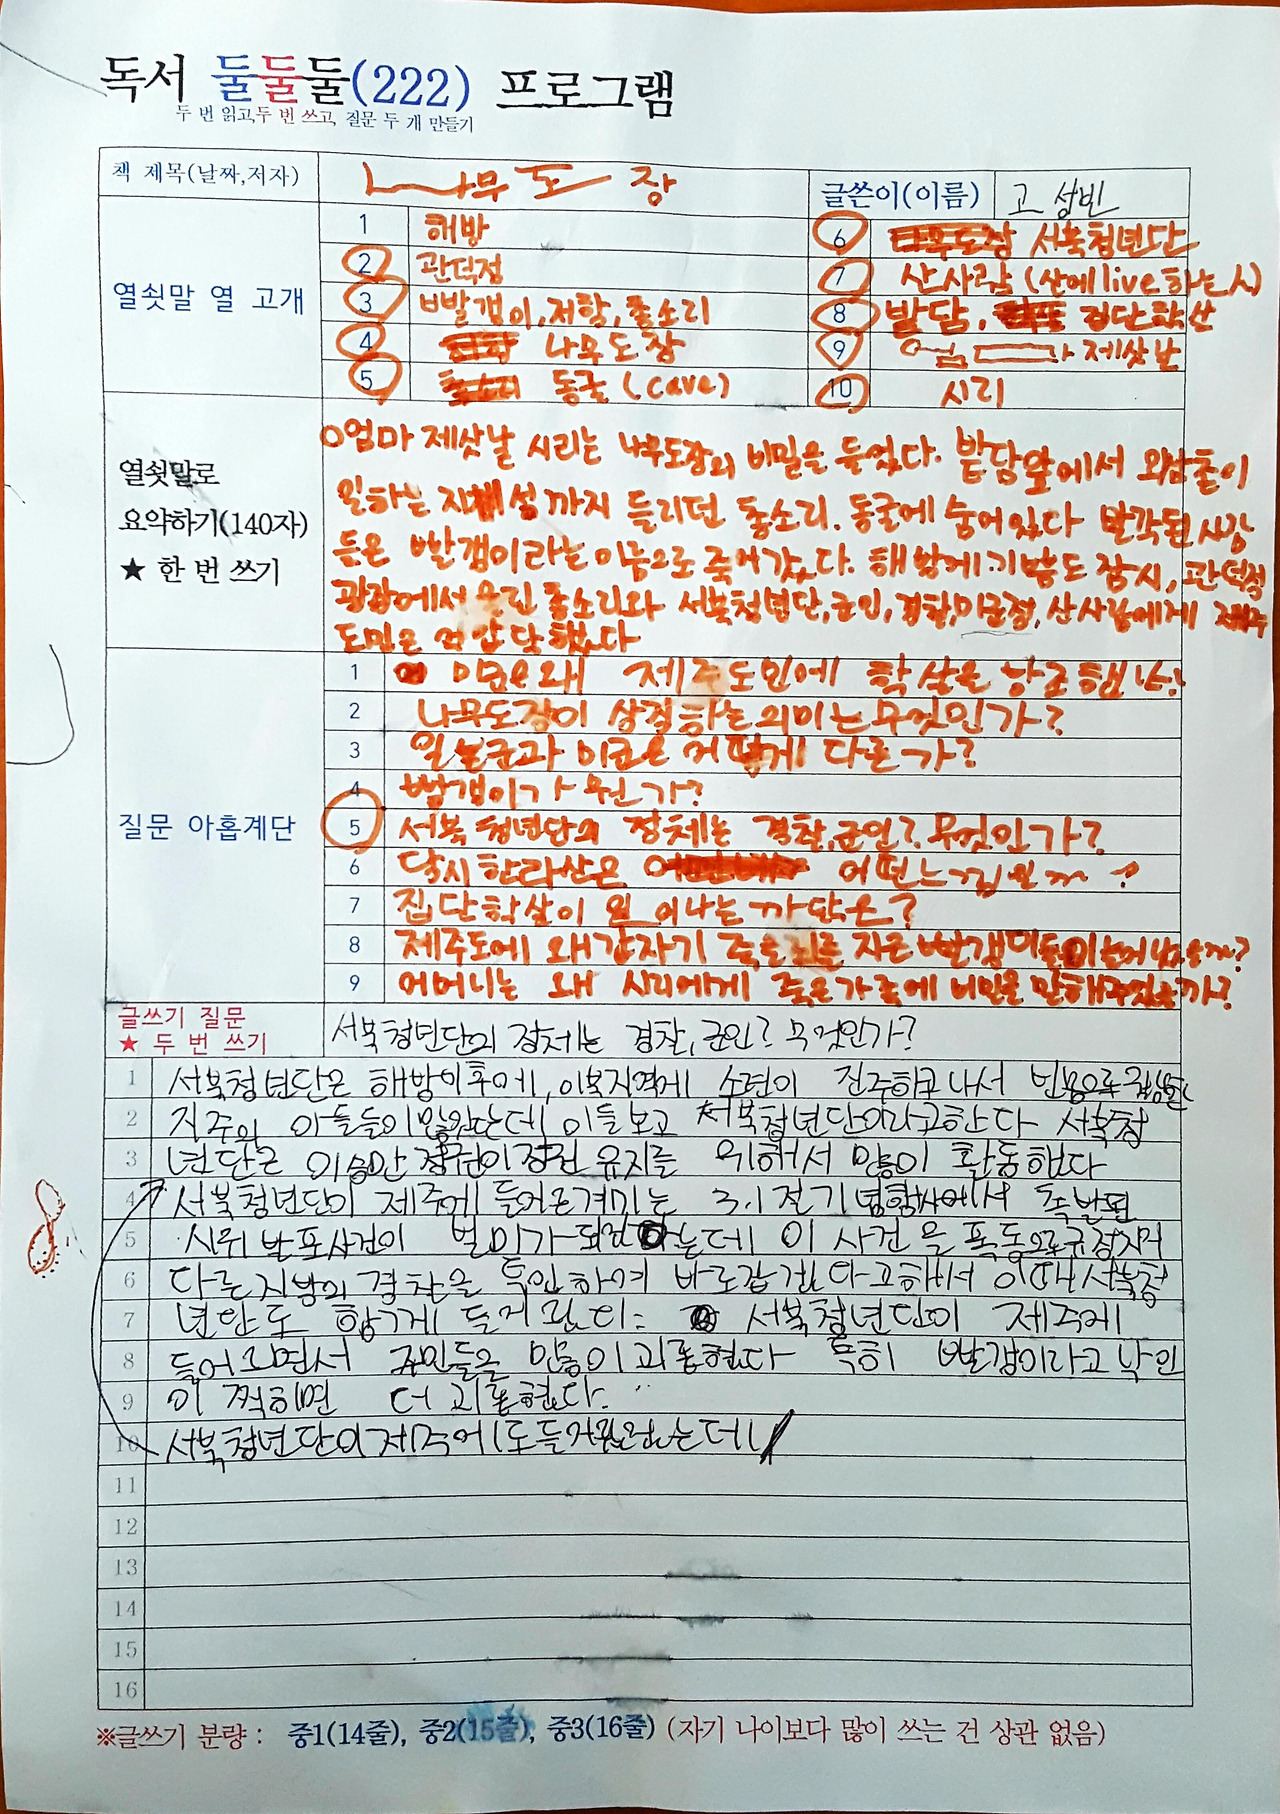 독서 둘둘둘(222) 프로그램
두 번 읽고, 두 번 쓰고, 질문 두 개 만들기
책 제목(날짜,저자) 나무도장 글쓴이(이름) 고성빈
열쇳말 열 고개
1 해방
2 관덕정
3 빨갱이, 저항, 총소리
4 나무도장
5 동굴 (cave)
6 서북청년단
7 산사람 (산에 live 하는 시)
8 밭담, 집단학산
9 제삿날
10 시리
열쇳말로
요약하기(140자)
★ 한 번 쓰기
엄마 제삿날 시리는 나무도장의 비밀을 들었다. 밭담앞에서 외삼촌이
일하는 까지 들리던 총소리. 동굴에 숨어있다 발각된 사람
든은 빨갱이라는 이름으로 죽어갔다. 해방에 기쁨도 잠시, 관덕정
광장에서 울린 총소리와 서북청년단, 군인, 경찰, 미군정, 산사람에게 제주
도민은 억압당했다
질문 아홉계단
1 미군은 왜 제주도민에 학살을
2 나무도장이 상징하는 의미는 무엇인가?
3 일본군과 미군은 어떻게 다른가?
4 빨갱이가 뭔가?
5 서북청년단의 정체는 경찰, 군인? 무엇인가?
6 당시 한라산은 어떤느낌일까?
7 집단학살이 일어나는 까닭은?
8 제주도에 왜 갑자기
9 어머니는 왜 시리에게 죽은가족에 비밀을
글쓰기 질문
★ 두 번 쓰기
서북청년단의 정체는 경찰, 군인? 무엇인가?
1 서북청년단은 해방이후에, 이북지역에 소련이 진주하고나서 반공으로
2 지주의 아들들이 이들보고 서북청년단이라고한다 서북청
3 년단은 이승만 정권이 정권 유지를 위해서 많이 활동했다
4 서북청년단이 제주에 들어온계기는 3.1절기념행사에서 촉발된
5 시위 발포사건이 빌미가 되었는데 이 사건을 폭동으로규정지어
6 다른지방의 경찰을 해서 이때 서북청
7 년단도 함께 들게된다. 서북청년단이 제주에
8 들어오면서 주민들을 많이괴롭혔다 특히 빨갱이라고 낙인
9 이 찍히면 더 괴롭혔다.
10 서북청년단이제주에도들어
11
12
13
14
15
16
※글쓰기 분량 : 중1(14줄), 중2(15줄), 중3(16줄) (자기 나이보다 많이 쓰는 건 상관 없음)